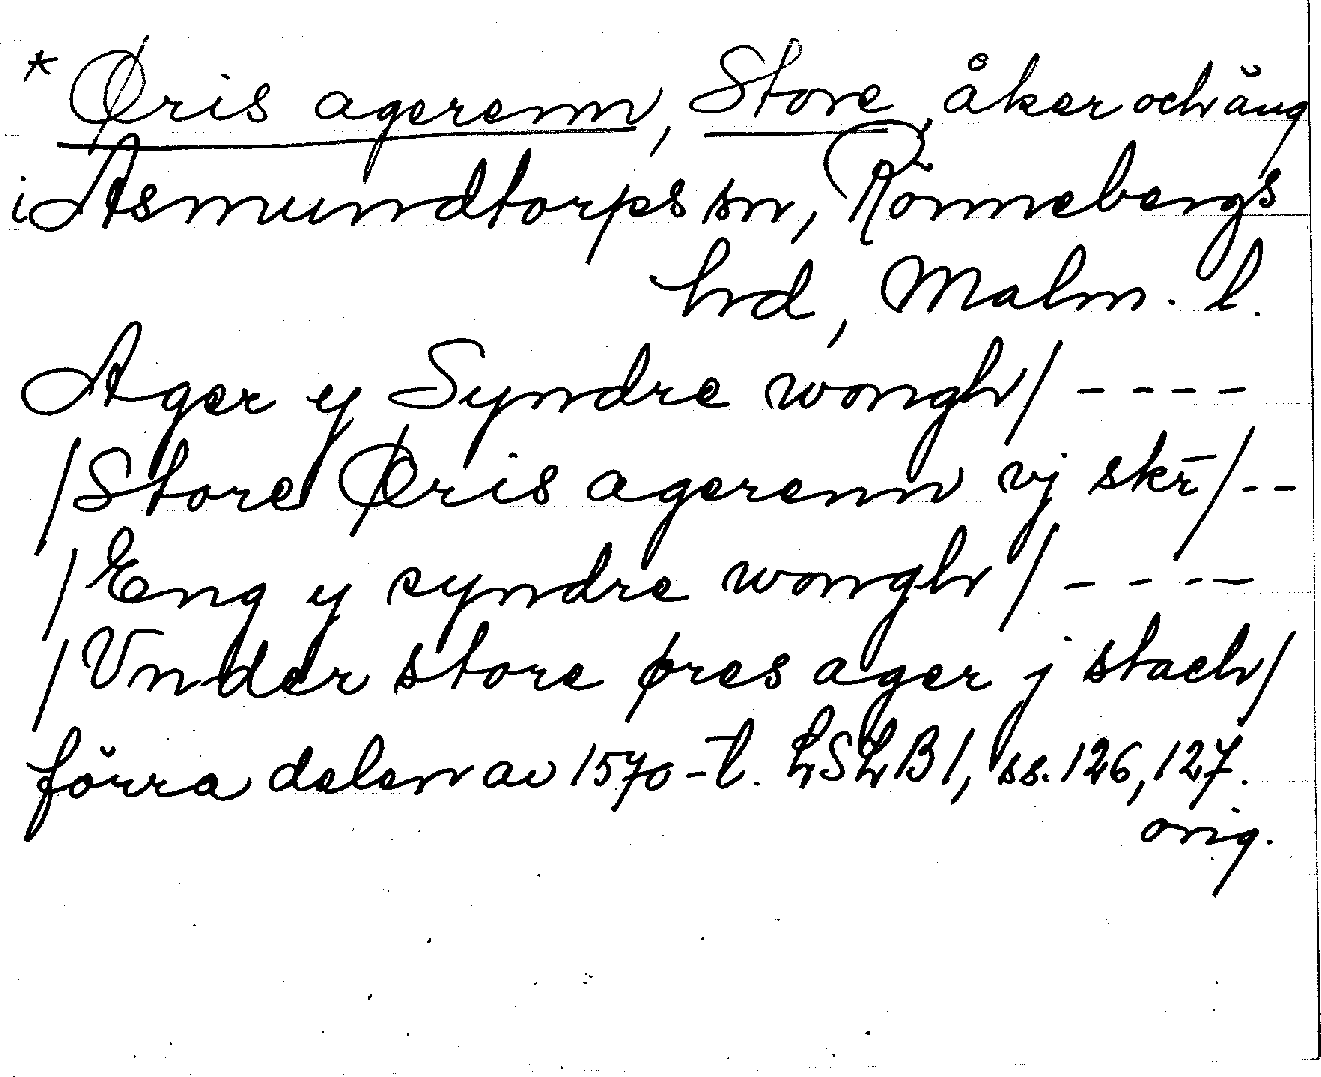 * Øris agerenn, Store, åker och äng
i Asmundtorps sn, Rönnebergs
hd, Malm. l.
Ager y Syndre wongh/ - - - -
/Store Øris agerenn vj skr̄/ - -
/Eng y syndre wongh/ - - - -
/Vnder store øres ager j stach/
förra delen av 1570-t. LSLB 1, ss. 126, 127.
orig.